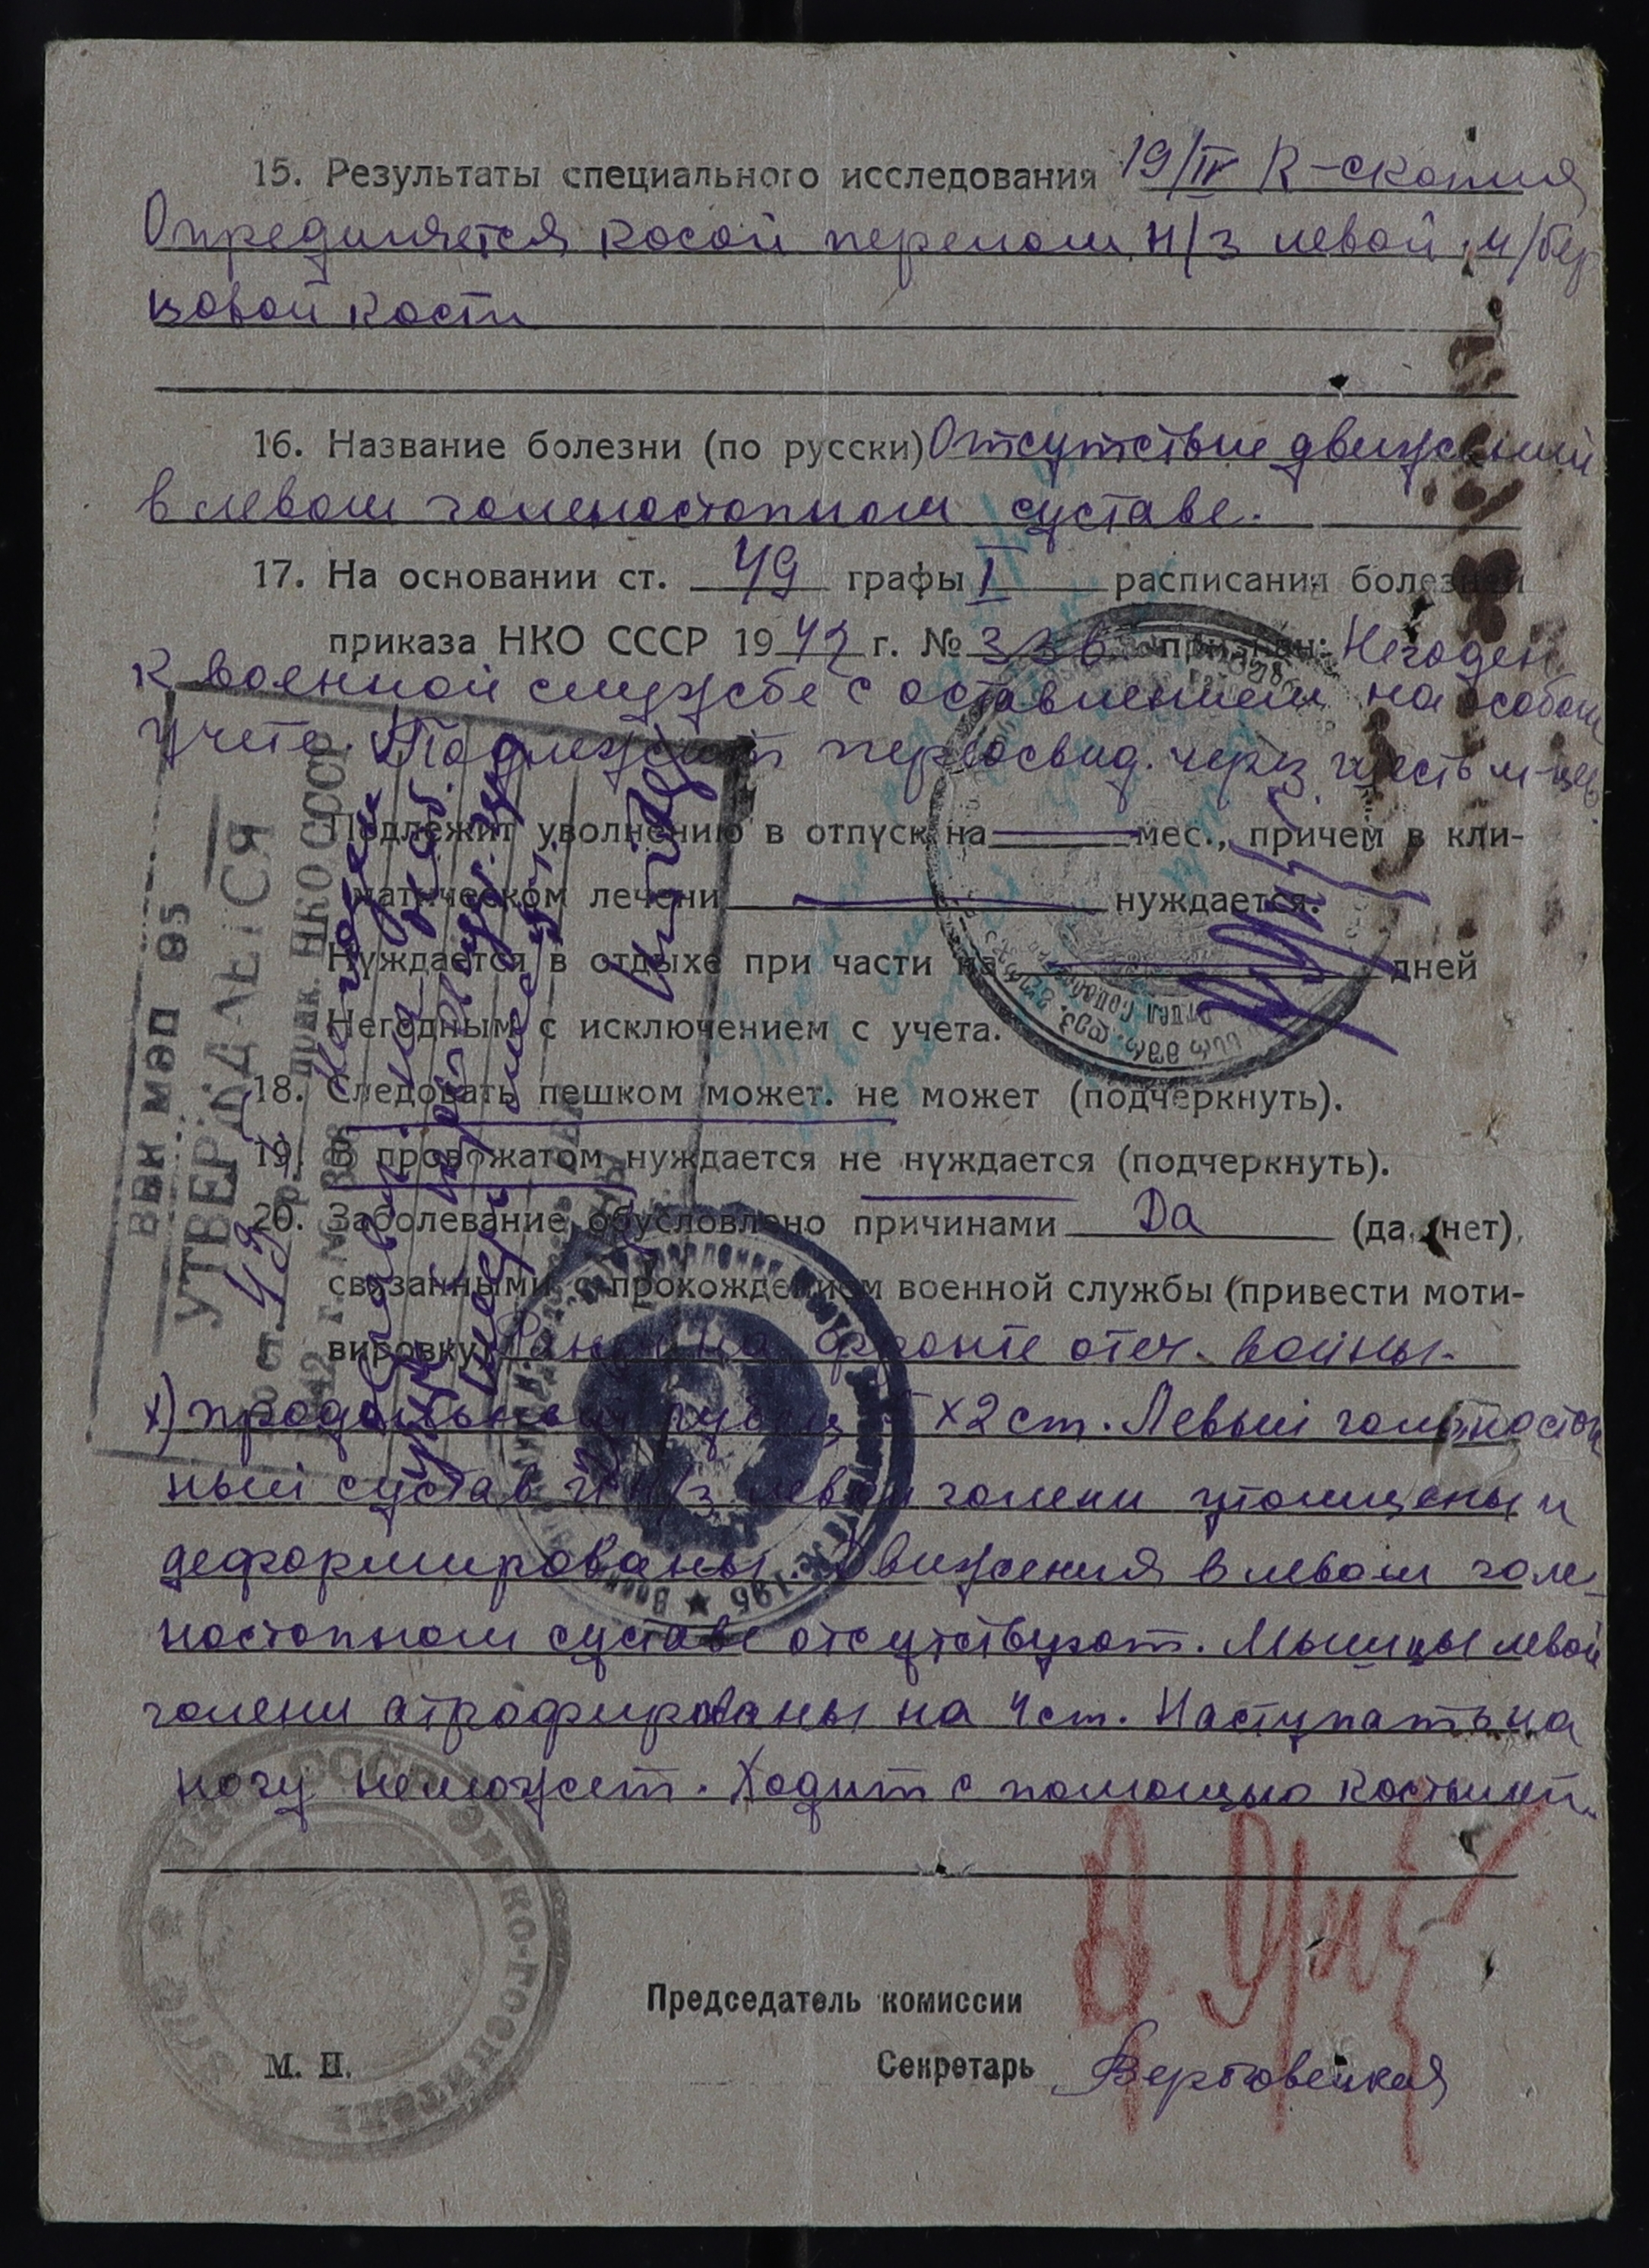 15. Результаты специального исследования 19/IV R-скопия
Определяется косой перелом н/з левой м/бер
цовой кости
16. Название болезни (по русски) Отсутствие движений
в левом голеностопном суставе.
17. На основании ст. 49 графы I расписания болезней
приказа НКО СССР 1942 г. № 336 признан: Негоден
к военной службе с оставлением на особом
учете. Подлежит переосвид. через шесть м-цев.
Подлежит уволнению в отпуск на мес., причем в кли-
матическом лечени нуждается.
Нуждается в отдыхе при части на дней
Негодным с исключением с учета.
18. Следовать пешком может. не может (подчеркнуть).
19. В провожатом нуждается не нуждается (подчеркнуть).
20. Заболевание обусловлено причинами Да (да, нет),
связанными с прохождением военной службы (привести моти-
вировку) Ранен на фронте отеч. войны.
х) продольный рубец х2 ст. Левый голеностоп
ный сустав и н/з левой голени утолщены и
деформированы. Движения в левом голе-
ностопном суставе отсутствуют. Мышцы левой
голени атрофированы на 4 ст. Наступать на
ногу неможет. Ходит с помощью костылей.
Председатель комиссии
М. П.
Секретарь
УТВЕРЖДАЕТСЯ
по ст. 49 гр. I прик. НКО СССР
1942 г. № 336
ЭВАКО-ГОСПИТАЛЬ